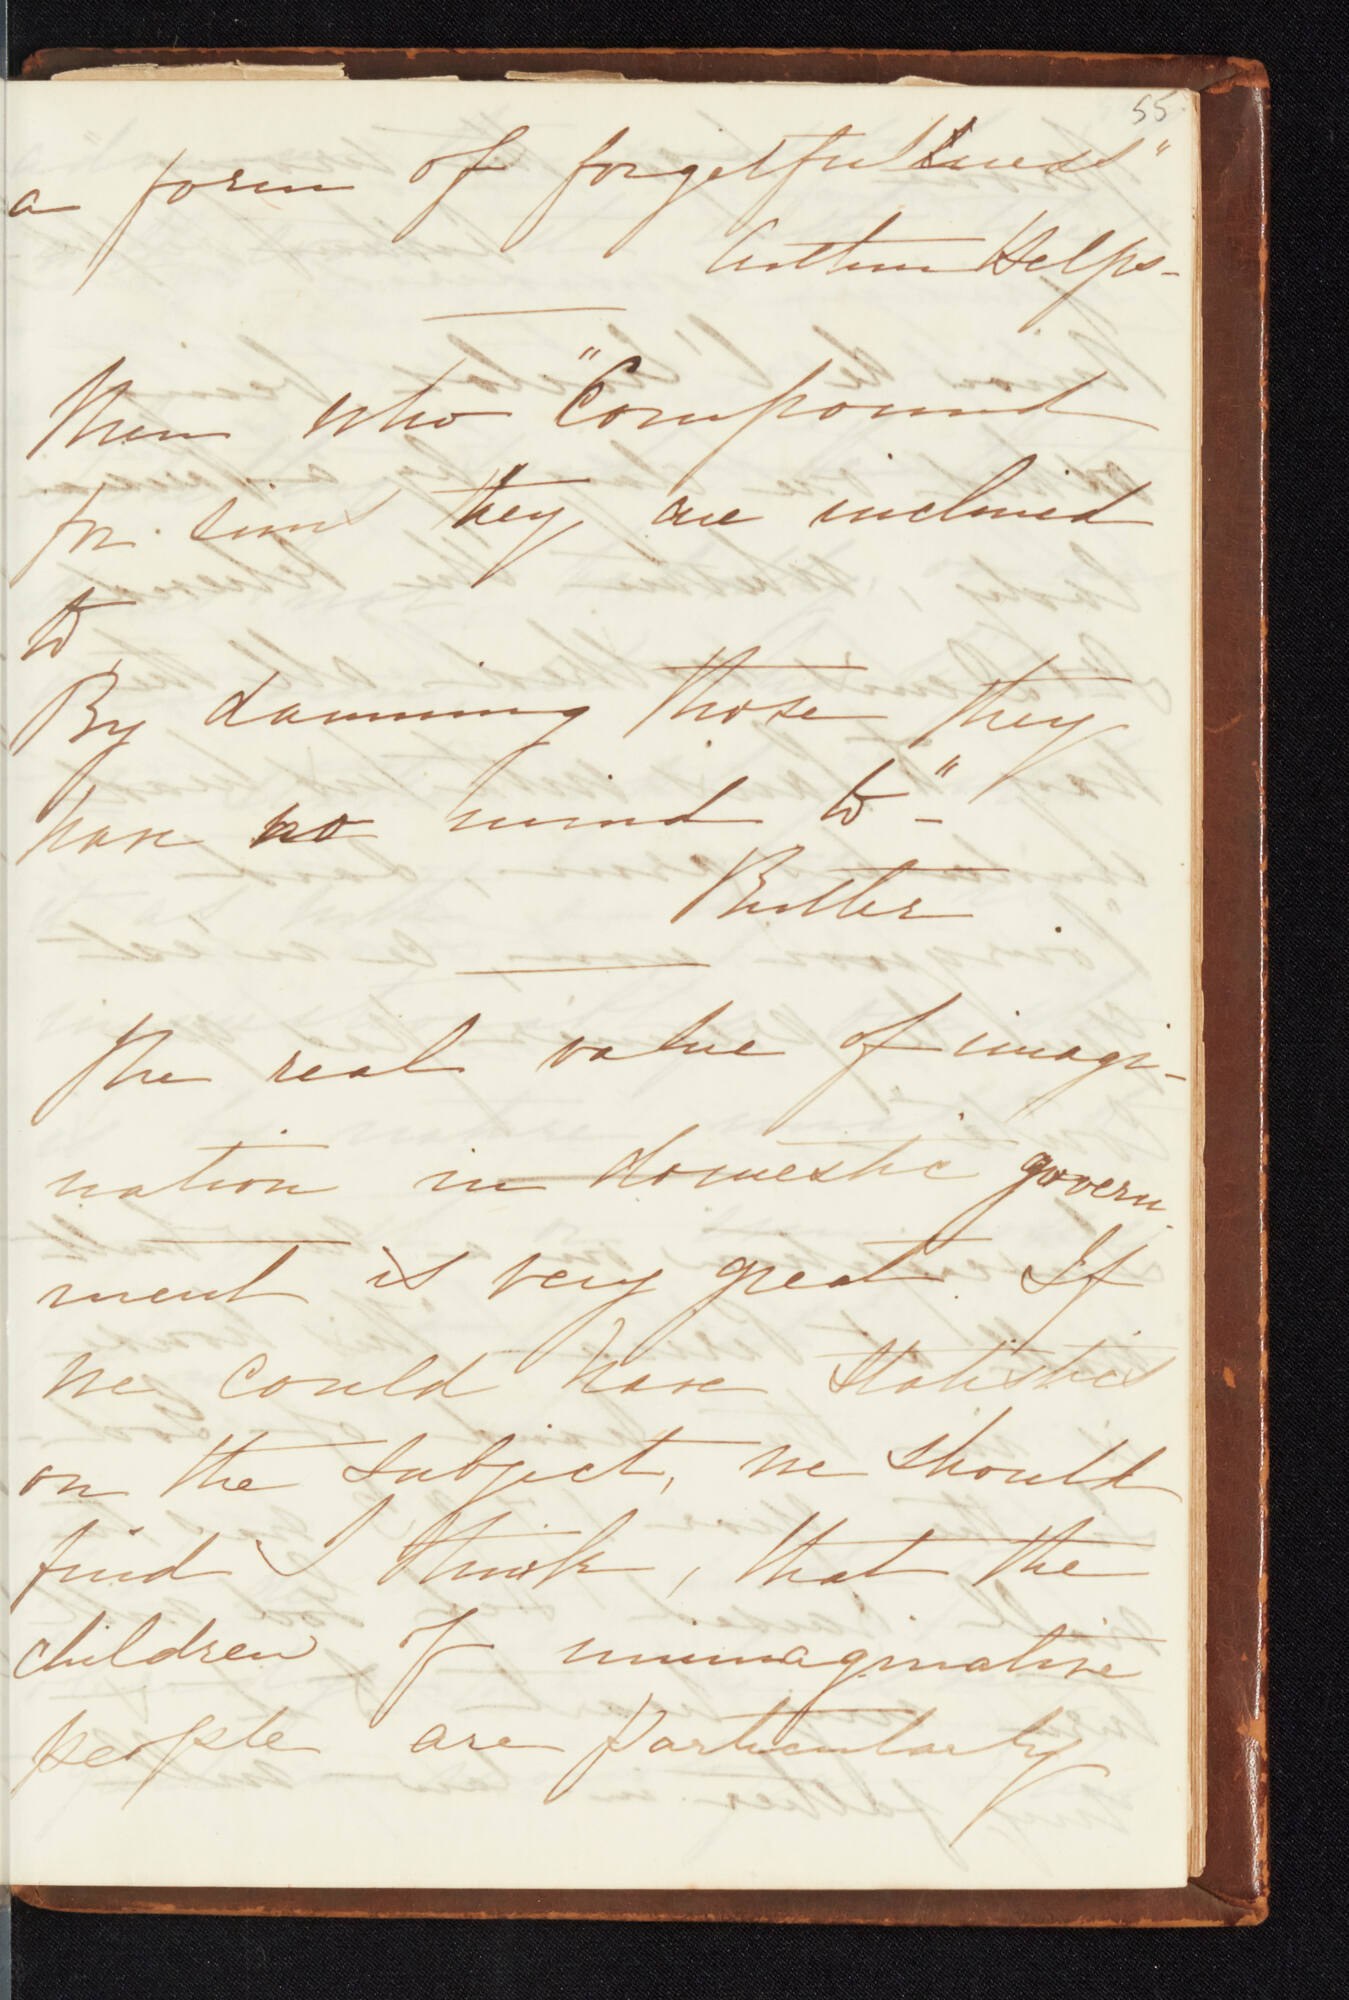 55
a form of forgetfulness"
Arthur Helps-
Men who "Compound
for sins they are inclined
to
By damning those they
have no mind to"-
Butler
The real value of imagi-
nation in domestic govern-
ment is very great. If
we could have statistics
on the subject, we should
find I think, that the
children of unimaginative
people are particularly